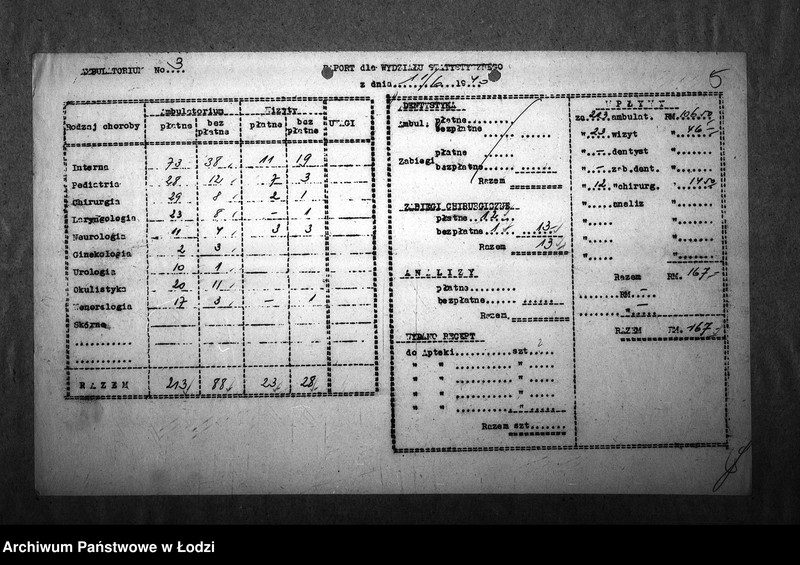 AMBULATORIUM No. 3
RAPORT dla WYDZIAŁU STATYSTYCZNEGO
z dnia
5
Rodzaj choroby Ambulatorium Wizyty UWAGI
płatne bez płatne płatne bez płatne
Interna 73 38 11 19
Pediatria 28 12 7 3
Chirurgia 29 8 2 1
Laryngologia 23 8 – 1
Neurologia 11 4 3 3
Ginekologia 2 3
Urologia 10 1
Okulistyka 20 11
Wenerologia 17 3 – 1
Skórne
RAZEM 213 88 23 28
DENTYSTYKA
Ambul. płatne
bezpłatne
Zabiegi płatne
bezpłatne
Razem
ZABIEGI CHIRURGICZNE
płatne 12
bezpłatne 1 13
Razem 13
ANALIZY
płatne
bezpłatne
Razem
WYDANO RECEPT
do Apteki szt.
" " "
" " "
" " "
" " "
Razem szt.
WPŁYWY
za 213 ambulat. RM. 106.50
" 23 wizyt " 46.–
" – dentyst "
" – zab.dent. "
" 12 "chirurg. " 14.50
" analiz "
" "
" "
" "
Razem RM. 167.–
RM. –
" –
RAZEM RM. 167.–
Archiwum Państwowe w Łodzi